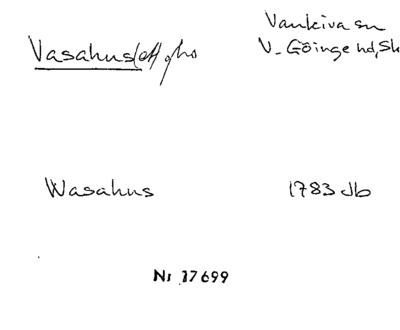 Vasahus(et) gho
Vankiva sn
V. Göinge hd, Sk
Wasahus
1783 Jb
Nr 17699